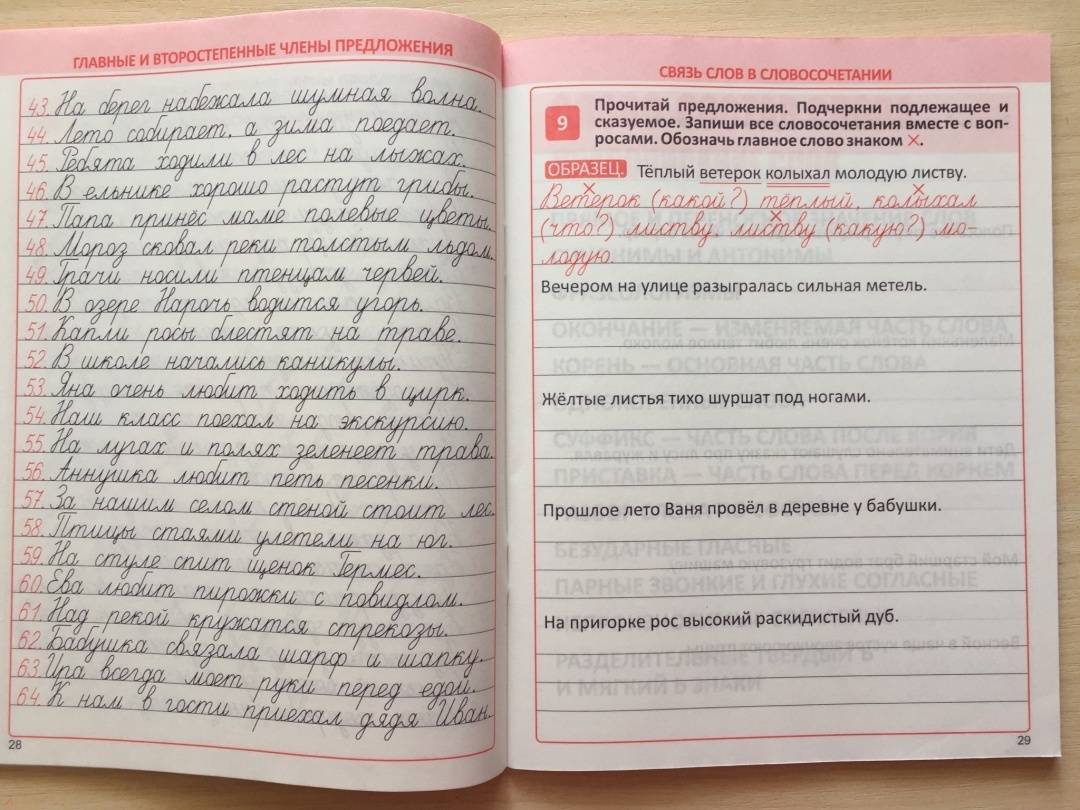 ГЛАВНЫЕ И ВТОРОСТЕПЕННЫЕ ЧЛЕНЫ ПРЕДЛОЖЕНИЯ
43. На берег набежала шумная волна.
44. Лето собирает, а зима поедает.
45. Ребята ходили в лес на лыжах.
46. В ельнике хорошо растут грибы.
47. Папа принёс маме полевые цветы.
48. Мороз сковал реки толстым льдом.
49. Грачи носили птенцам червей.
50. В озере Нарочь водится угорь.
51. Капли росы блестят на траве.
52. В школе начались каникулы.
53. Яна очень любит ходить в цирк.
54. Наш класс поехал на экскурсию.
55. На лугах и полях зеленеет трава.
56. Аннушка любит петь песенки.
57. За нашим селом стеной стоит лес.
58. Птицы стаями улетели на юг.
59. На стуле спит щенок Гермес.
60. Ева любит пирожки с повидлом.
61. Над рекой кружатся стрекозы.
62. Бабушка связала шарф и шапку.
63. Ира всегда моет руки перед едой.
64. К нам в гости приехал дядя Иван.
28
СВЯЗЬ СЛОВ В СЛОВОСОЧЕТАНИИ
9
Прочитай предложения. Подчеркни подлежащее и
сказуемое. Запиши все словосочетания вместе с воп-
росами. Обозначь главное слово знаком ×.
ОБРАЗЕЦ. Тёплый ветерок колыхал молодую листву.
Ветерок (какой?) тёплый, колыхал
(что?) листву, листву (какую?) мо-
лодую.
Вечером на улице разыгралась сильная метель.
Жёлтые листья тихо шуршат под ногами.
Прошлое лето Ваня провёл в деревне у бабушки.
На пригорке рос высокий раскидистый дуб.
29